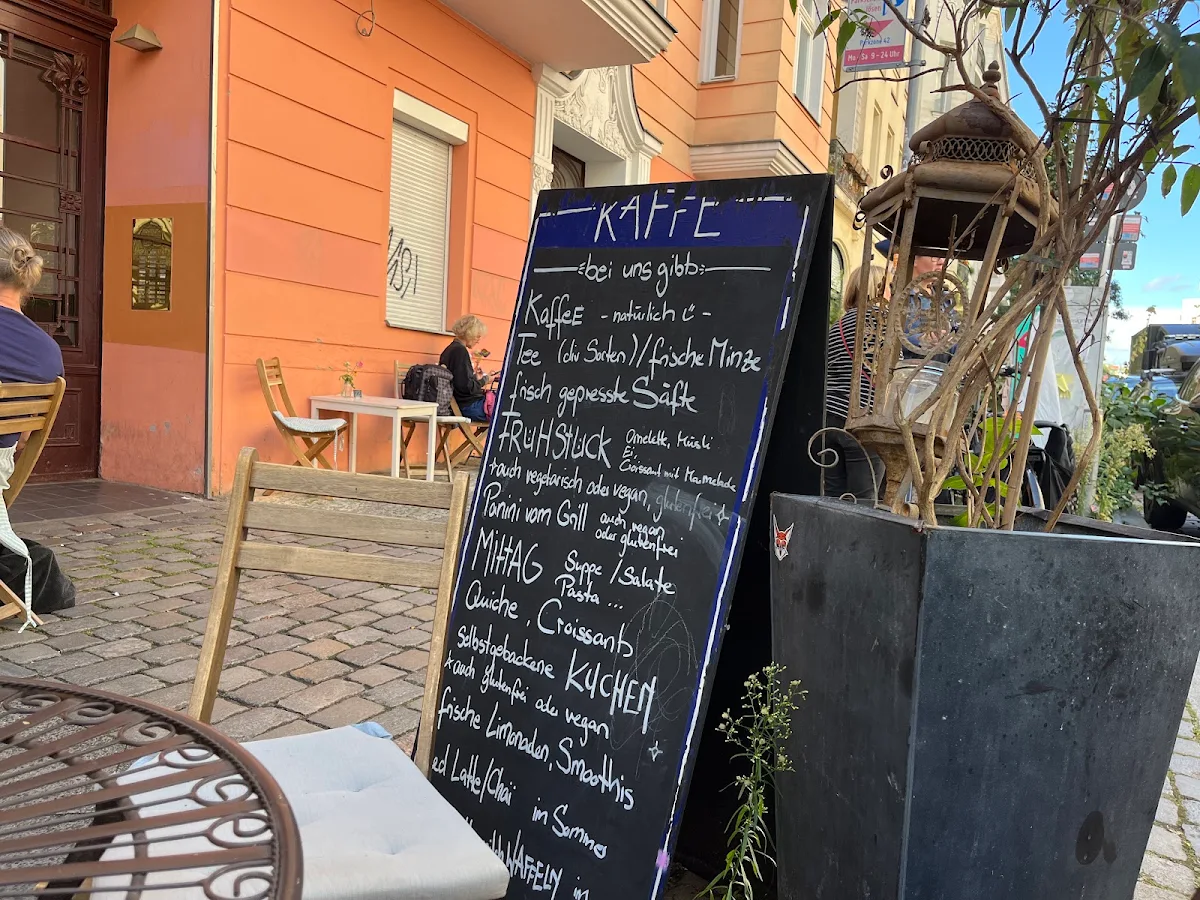 KAFFE
bei uns gibts
Kaffee - natürlich ü -
Tee (div Sorten) / frische Minze
frisch gepresste Säfte
FRÜHSTÜCK Omelette, Müsli
Ei,
Croissant mit Marmelade
+auch vegetarisch oder vegan, glutenfrei
Panini vom Grill auch vegan
oder glutenfrei
MITTAG Suppe / Salate
Pasta ...
Quiche, Croissants
Selbstgebackene KUCHEN
*auch glutenfrei oder vegan
frische Limonaden, Smoothis
ed Latte/Chai im Sommer
WAFFELN im
Parkzone 42
Mo-Sa 9-24 Uhr